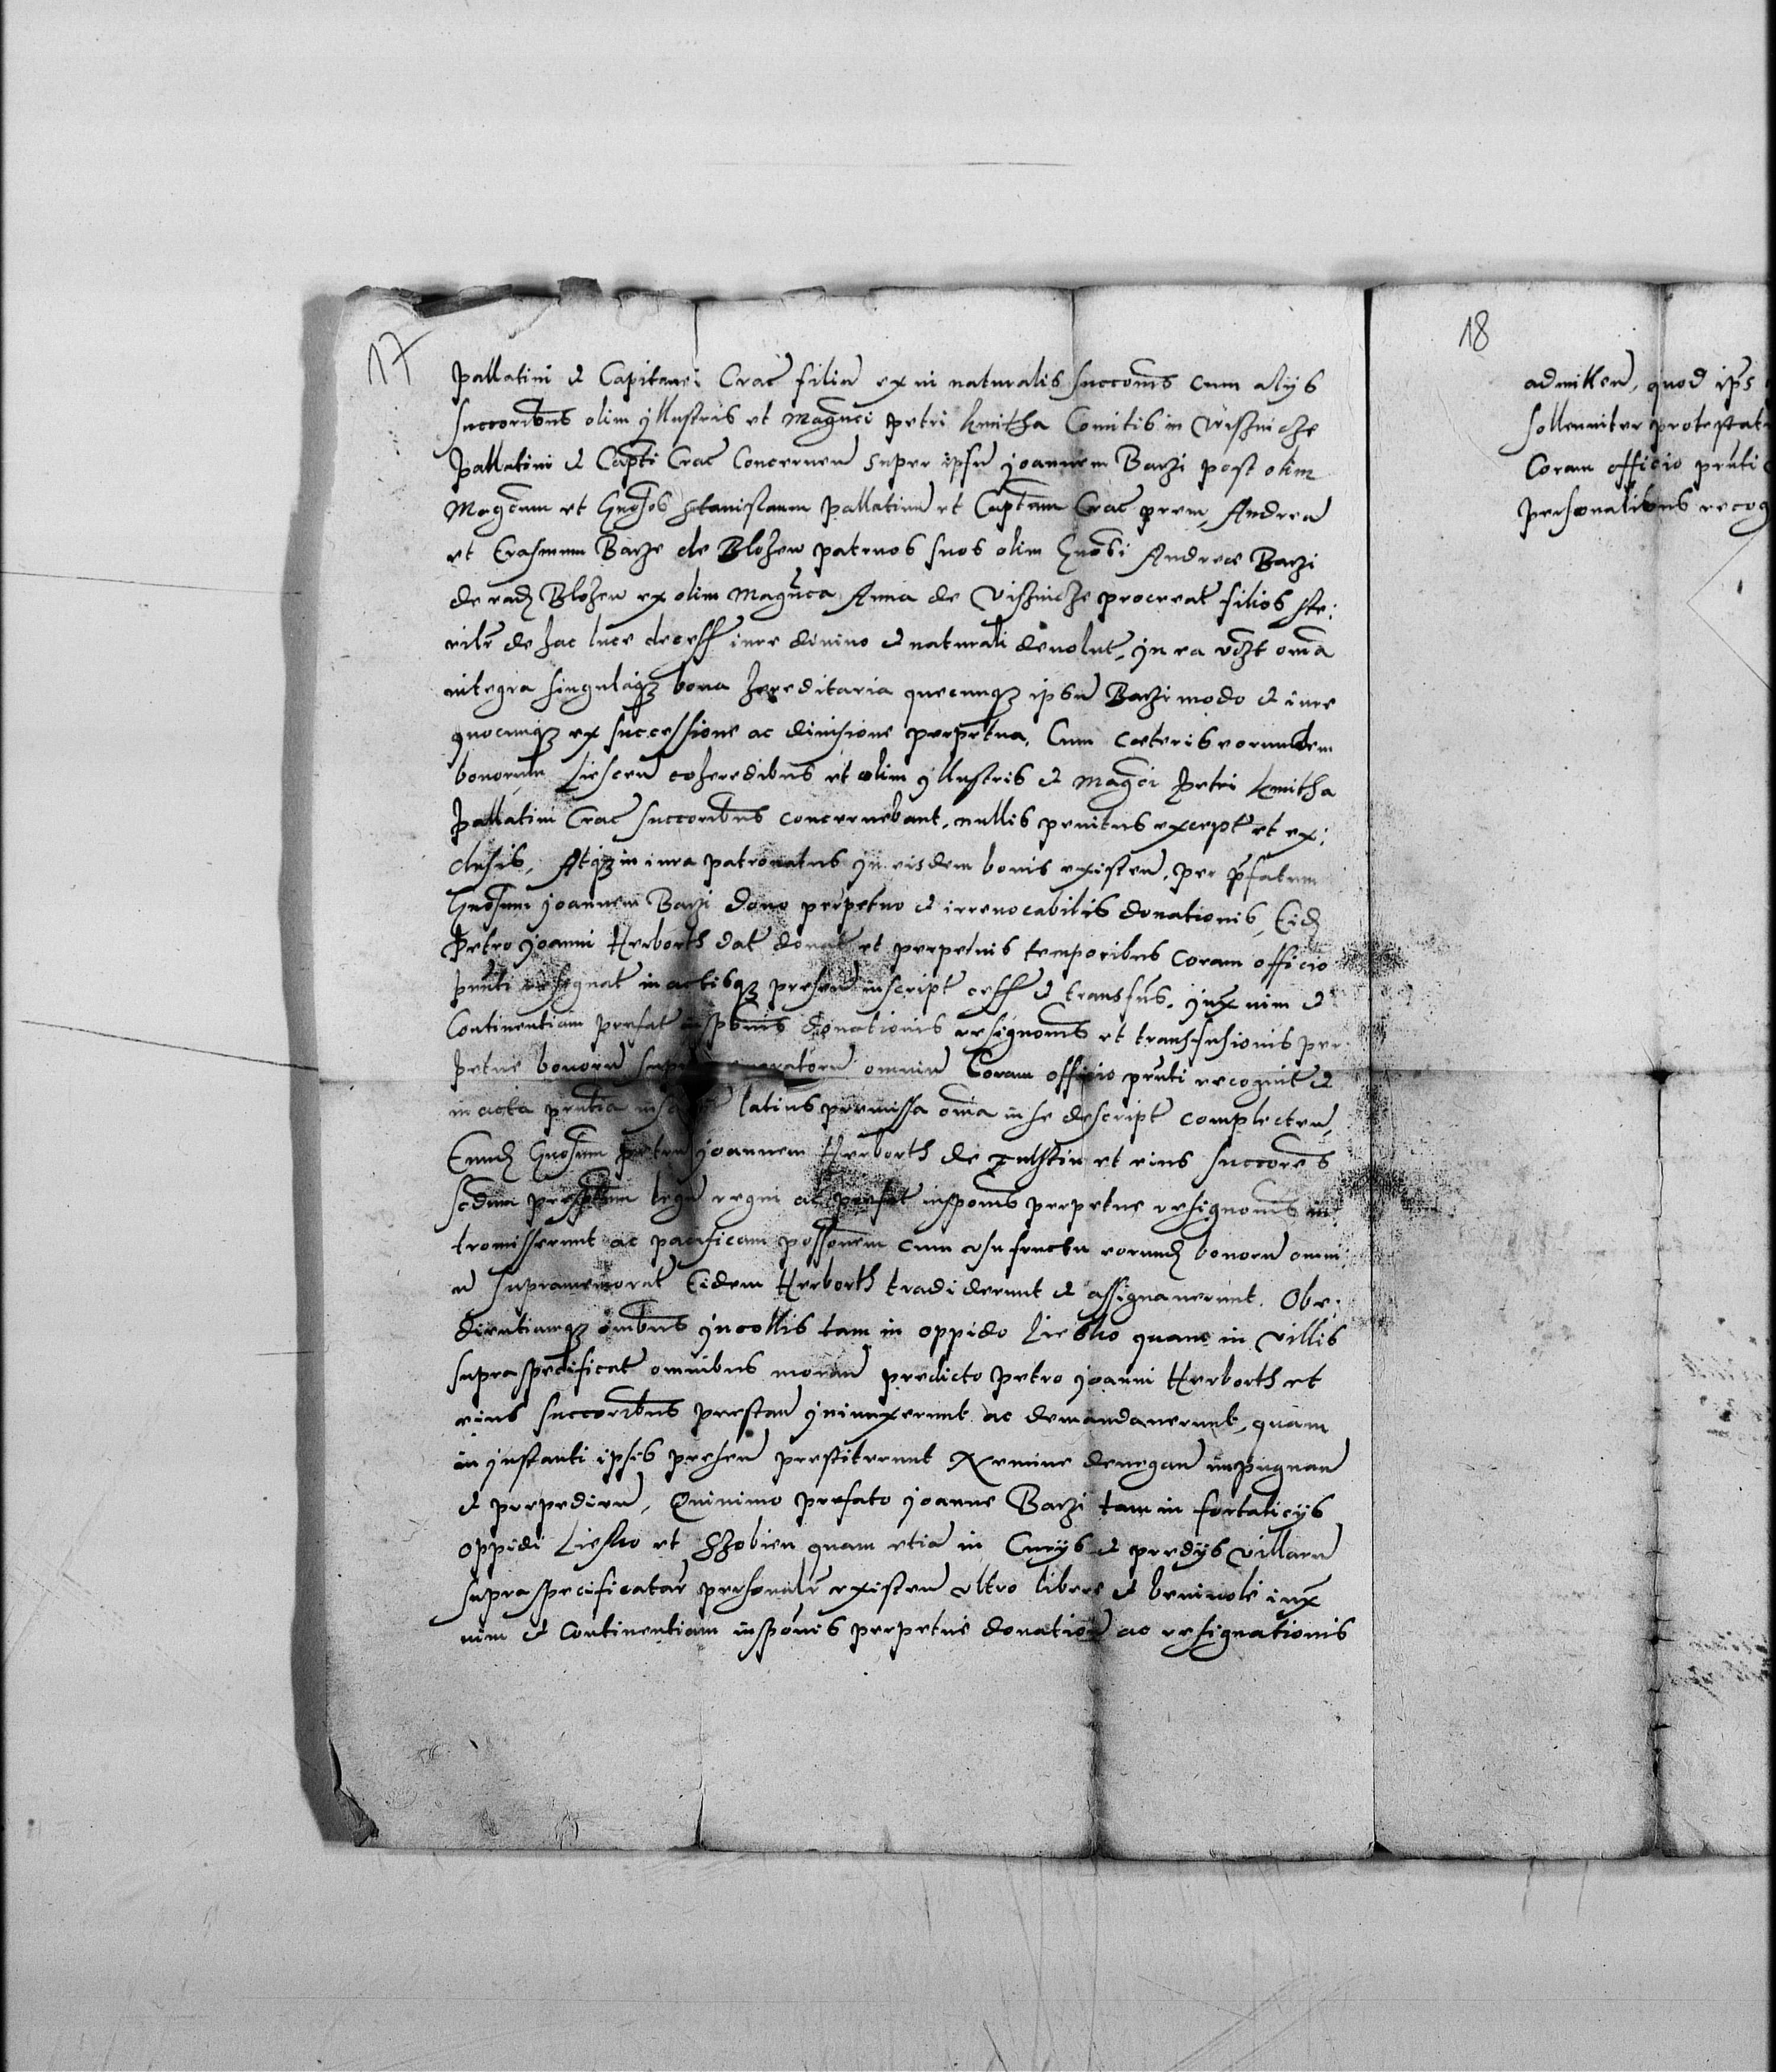 17
pallatini et Capitanei Crac̃ filiū ex vi naturalis succomis cum alys
succoribus olim yllustris et Magnci petri kmitha Comitis in Visnicze
pallatini et Capti Crac̃ Concernen super ipsū joannem Barzi post olim
Magcum et Gnosos Stanislaum pallatinū et Captum Crac̃ prem, Andreā
et Erasmum Barze de Blozew patruos suos olim Gnosi Andree Barzi
de eadz Blozew ex olim Magnca Anna de Visznicze procreat filios ste:
rilr de hac luce decess iure diuino et naturali deuolut, yn ea vczt oma
integra singulaqz bona hereditaria quecunqz ipsū Barzi modo et iure
quocunqz ex successione ac diuisione perpetua, Cum cæteris eorundem
bonorum Liescen coheredibus et olim yllustris et Magci Petri kmitha
pallatini Crac̃ succoribus concernebant, nullis penitus except et ex:
clusis, Atqz in iura patronatus yn eisdem bonis existen, per pfatum
Gnosum joannem Barzi dono perpetuo et irreuocabilis donationis, Eidz
Petro joanni Herborth dat donat et perpetuis temporibus Coram officio
pnti resignat in actisqz presen inscript cess et transfus, yuxta vim et
Continentiam prefat inspomis donationis resignomis et transfusionis per
petue bonorū supra omniū Coram officio pnti recognit et
in acta pntia latius premissa oma in se descript complecten,
Eundz Gnosum petrū joannem Herborth de ffulstin et eius succores
scdum legū regni ac prefat inspomis perpetue resignomis in
tromisserunt ac pacificam possonem cum vsufructu eorundz bonorū omni:
ū supramemorat Eidem Herborth tradiderunt et assignauerunt. Obe:
dientiamqz omibus yncollis tam in oppido Liesko quam in villis
supraspecificat omnibus moran predicto Petro joanni Herborth et
eius succoribus prestan yniunxerunt ac demandauerunt, quam
in ynstanti ipsis presen prestiterunt Nemine denegan impugnan
et prepedien, Quinimo prefato joanne Barzi tam in fortalicys
oppidi Liesko et Szobien quam etiā in Curys et predys villarū
supraspecificatar personalr existen vltro libere et beniuole iuxta
vim et Continentiam insponis perpetue donation ac resignationis
18
admitten, quod ips
sollenniter protestat
Coram officio pnti
personalibus recog